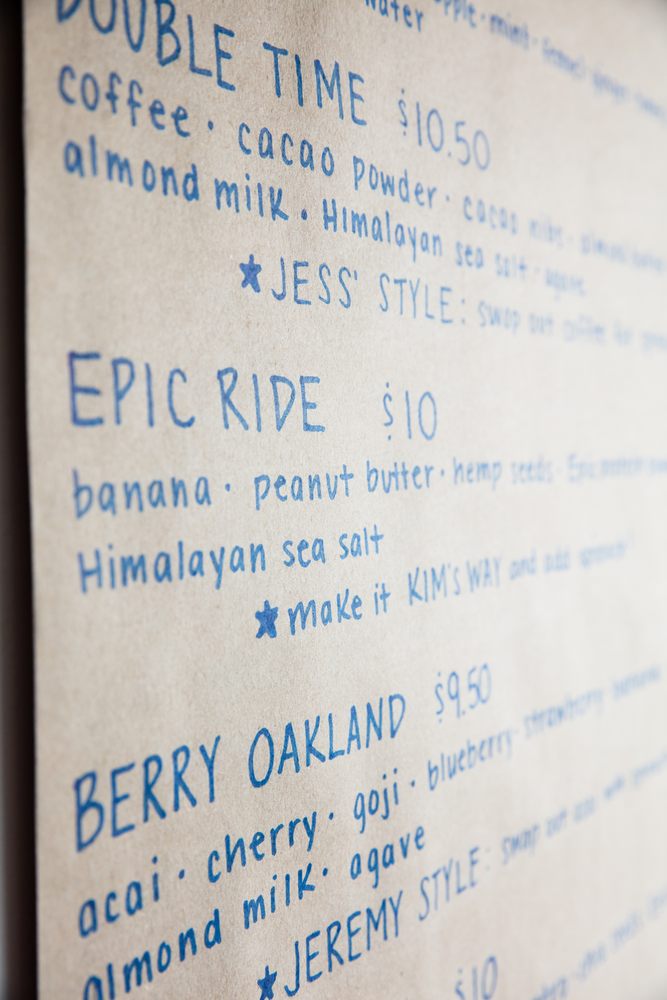 water
mint
DOUBLE TIME $10.50
coffee · cacao powder · cacao nibs · almond
almond milk · Himalayan sea salt · agave
★ JESS' STYLE: swap out coffee for
EPIC RIDE $10
banana · peanut butter · hemp seeds · Epic protein
Himalayan sea salt
★ make it KIM'S WAY and add spinach!
BERRY OAKLAND $9.50
acai · cherry · goji · blueberry · strawberry · banana
almond milk · agave
★ JEREMY STYLE: swap out acai with
$10